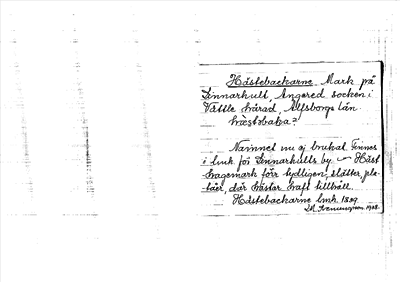 Hästebackarne Mark på
Linnarhult, Angered socken i
Vättle härad Älfsborgs län.
hæstabaka?
Namnet nu ej brukat. Finnes
i luk för Linnarhults by. – Häst
hagemark förr tydligen, slätter, pla
tåer, där hästar haft tillhåll.
Hästebackarne lmk. 1839
1928.